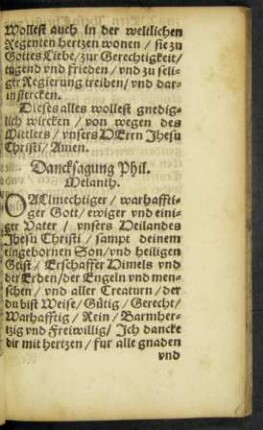 Wollest auch in der weltlichen
Regenten hertzen wonen / sie zu
Gottes Liebe / zur Gerechtigkeit /
tugend vnd frieden / vnd zu seli-
ger Regierung treiben / vnd dar-
in stercken.
Dieses alles wollest gnedig-
lich wircken / von wegen des
Mittlers / vnsers HErrn Jhesu
Christi / Amen.
Dancksagung Phil.
Melanth.
O Allmechtiger / warhaffti-
ger Gott / ewiger vnd eini-
ger Vater / vnsers Heilandes
Jhesu Christi / sampt deinem
eingebornen Son / vnd heiligen
Geist / Erschaffer Himels vnd
der Erden / der Engeln vnd men-
schen / vnd aller Creaturn / der
du bist Weise / Gütig / Gerecht /
Warhafftig / Rein / Barmher-
tzig vnd Freiwillig / Ich dancke
dir mit hertzen / für alle gnaden
vnd